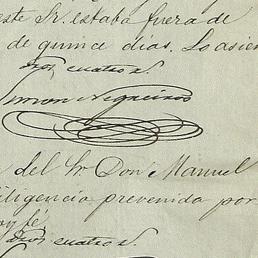 este Sr. estaba fuera de
de quince dias. Lo asien
dros, cuatro s.
Simon Negreiros
del Sr Don Manuel
iligencia prevenida por
oy fé
dros cuatro s.